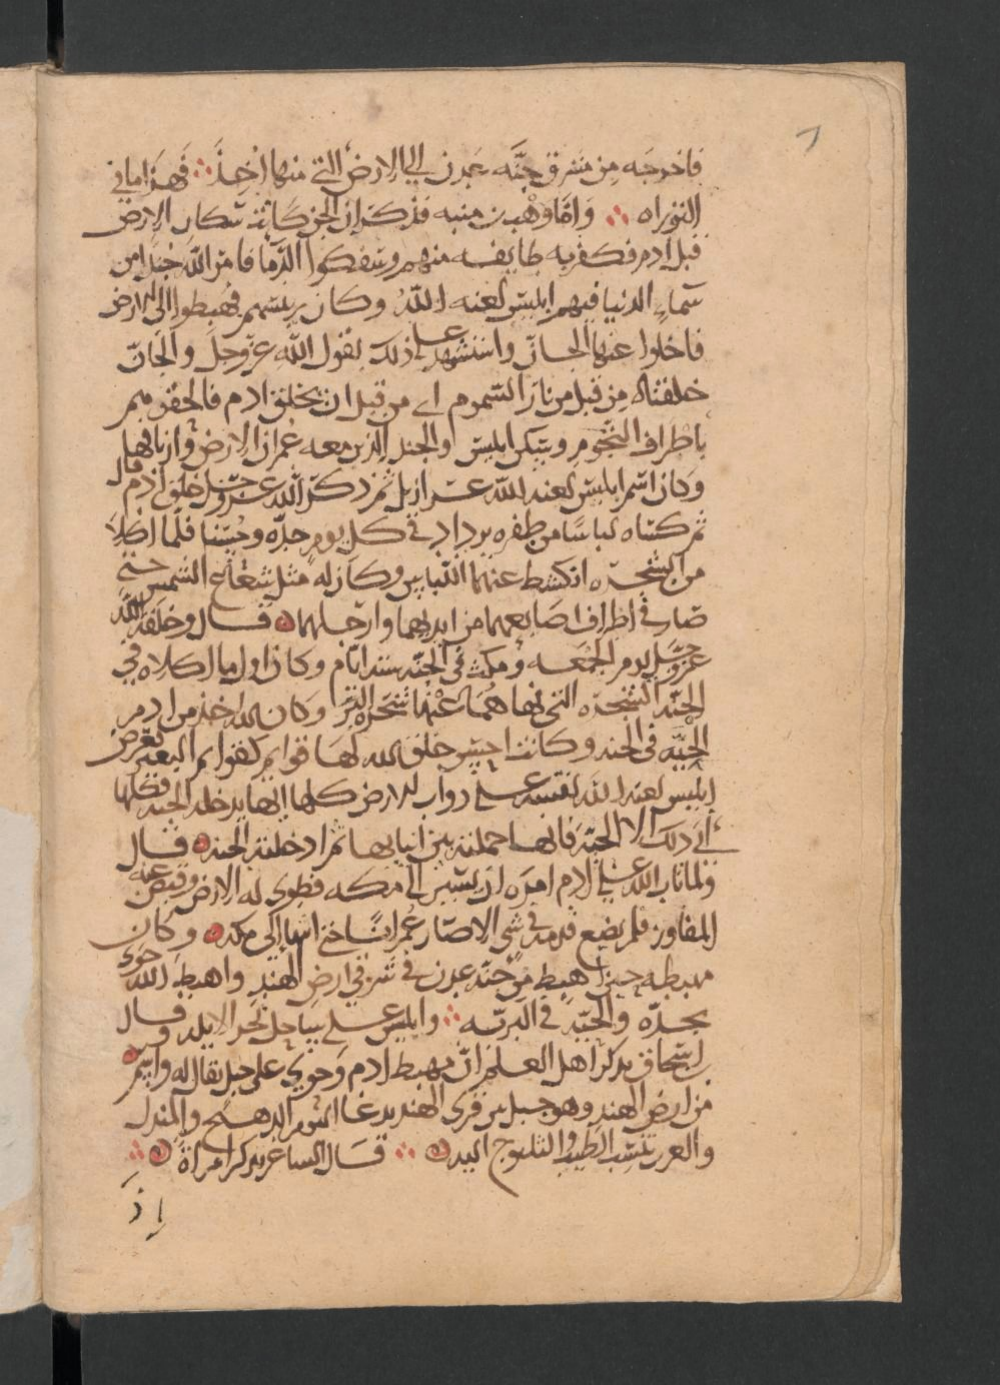 فاخرجه من مشرق جنّه عدن الي الارض التي منها اخذ ∴ فهذا ما في
التوراه ∴ وامّا وهب بن منبه فذكر ان الجن كانت سكان الارض
قبل ادم فكفر به طايفه منهم وسفكوا الدّما فامر اللّه جندا من
سماء الدنيا فيهم ابليس لعنه اللّه وكان رييسهم فهبطوا الى الارض
فاجلوا عنها الجانّ واستشهد على ذلك بقول اللّه عزّ وجل والجانّ
خلقناه من قبل من نار السّموم اي من قبل ان يخلق ادم فالحقوهم
باطراف التخوم وسكن ابليس والجند الذين معه عمران الارض واريافها
وكان اسم ابليس لعنه اللّه عزازيل ثم ذكر اللّه عز وجل خلق ادم قال
ثم كساه لباسا من ظفره يزداد في كل يوم جدّه وحسنا فلمّا اكلا
من الشجره انكشط عنهما اللّباس وكان له مثل شعاع الشمس حتي
صار في اطراف اصابعهما من ايديهما وارجلهما ۞ قال وخلقه اللّه
عزوجل يوم الجمعه ومكث في الجنه سته ايّام وكان اول ما اكلاه في
الجنّه الشجره التي نهاهما عنها شجرة البرّ وكان الله اخدم ادم
الحيّه في الجنه وكانت احسن خلق لله لها قوايم كقوايم البعير فعرض
ابليس لعنه اللّه نفسه على دواب الارض كلها انها يدخله الجنه فكلها
ابي ذلك الا الحيّه فانها حملته بين انيابها ثم ادخلته الجنه ۞ قال
ولما تاب اللّه على ادم امره ان يسير الي مكه فطوي له الارض وقبض عنه
المفاوز فلم يضع قدمه في شي الا صار عمرانا حتي انتها الى مكه ۞ وكان
مهبطه حين اهبط من جنّه عدن في شرقي ارض الهند واهبط اللّه حوي
بجدّه والحيّه في البرّيه ∴ وابليس على ساحل بحر الابله وقال
ابن اسحاق يذكر اهل العلم انّ مهبط ادم وحوي على جبل يقال له واسم
من ارض الهند وهو جبل بين قرى الهند يدعا اليوم الدهنج والمندل
واليه تنسب الطيب ۞ ∴ قال الشاعر يذكر امراة ۞ ∴
اذا